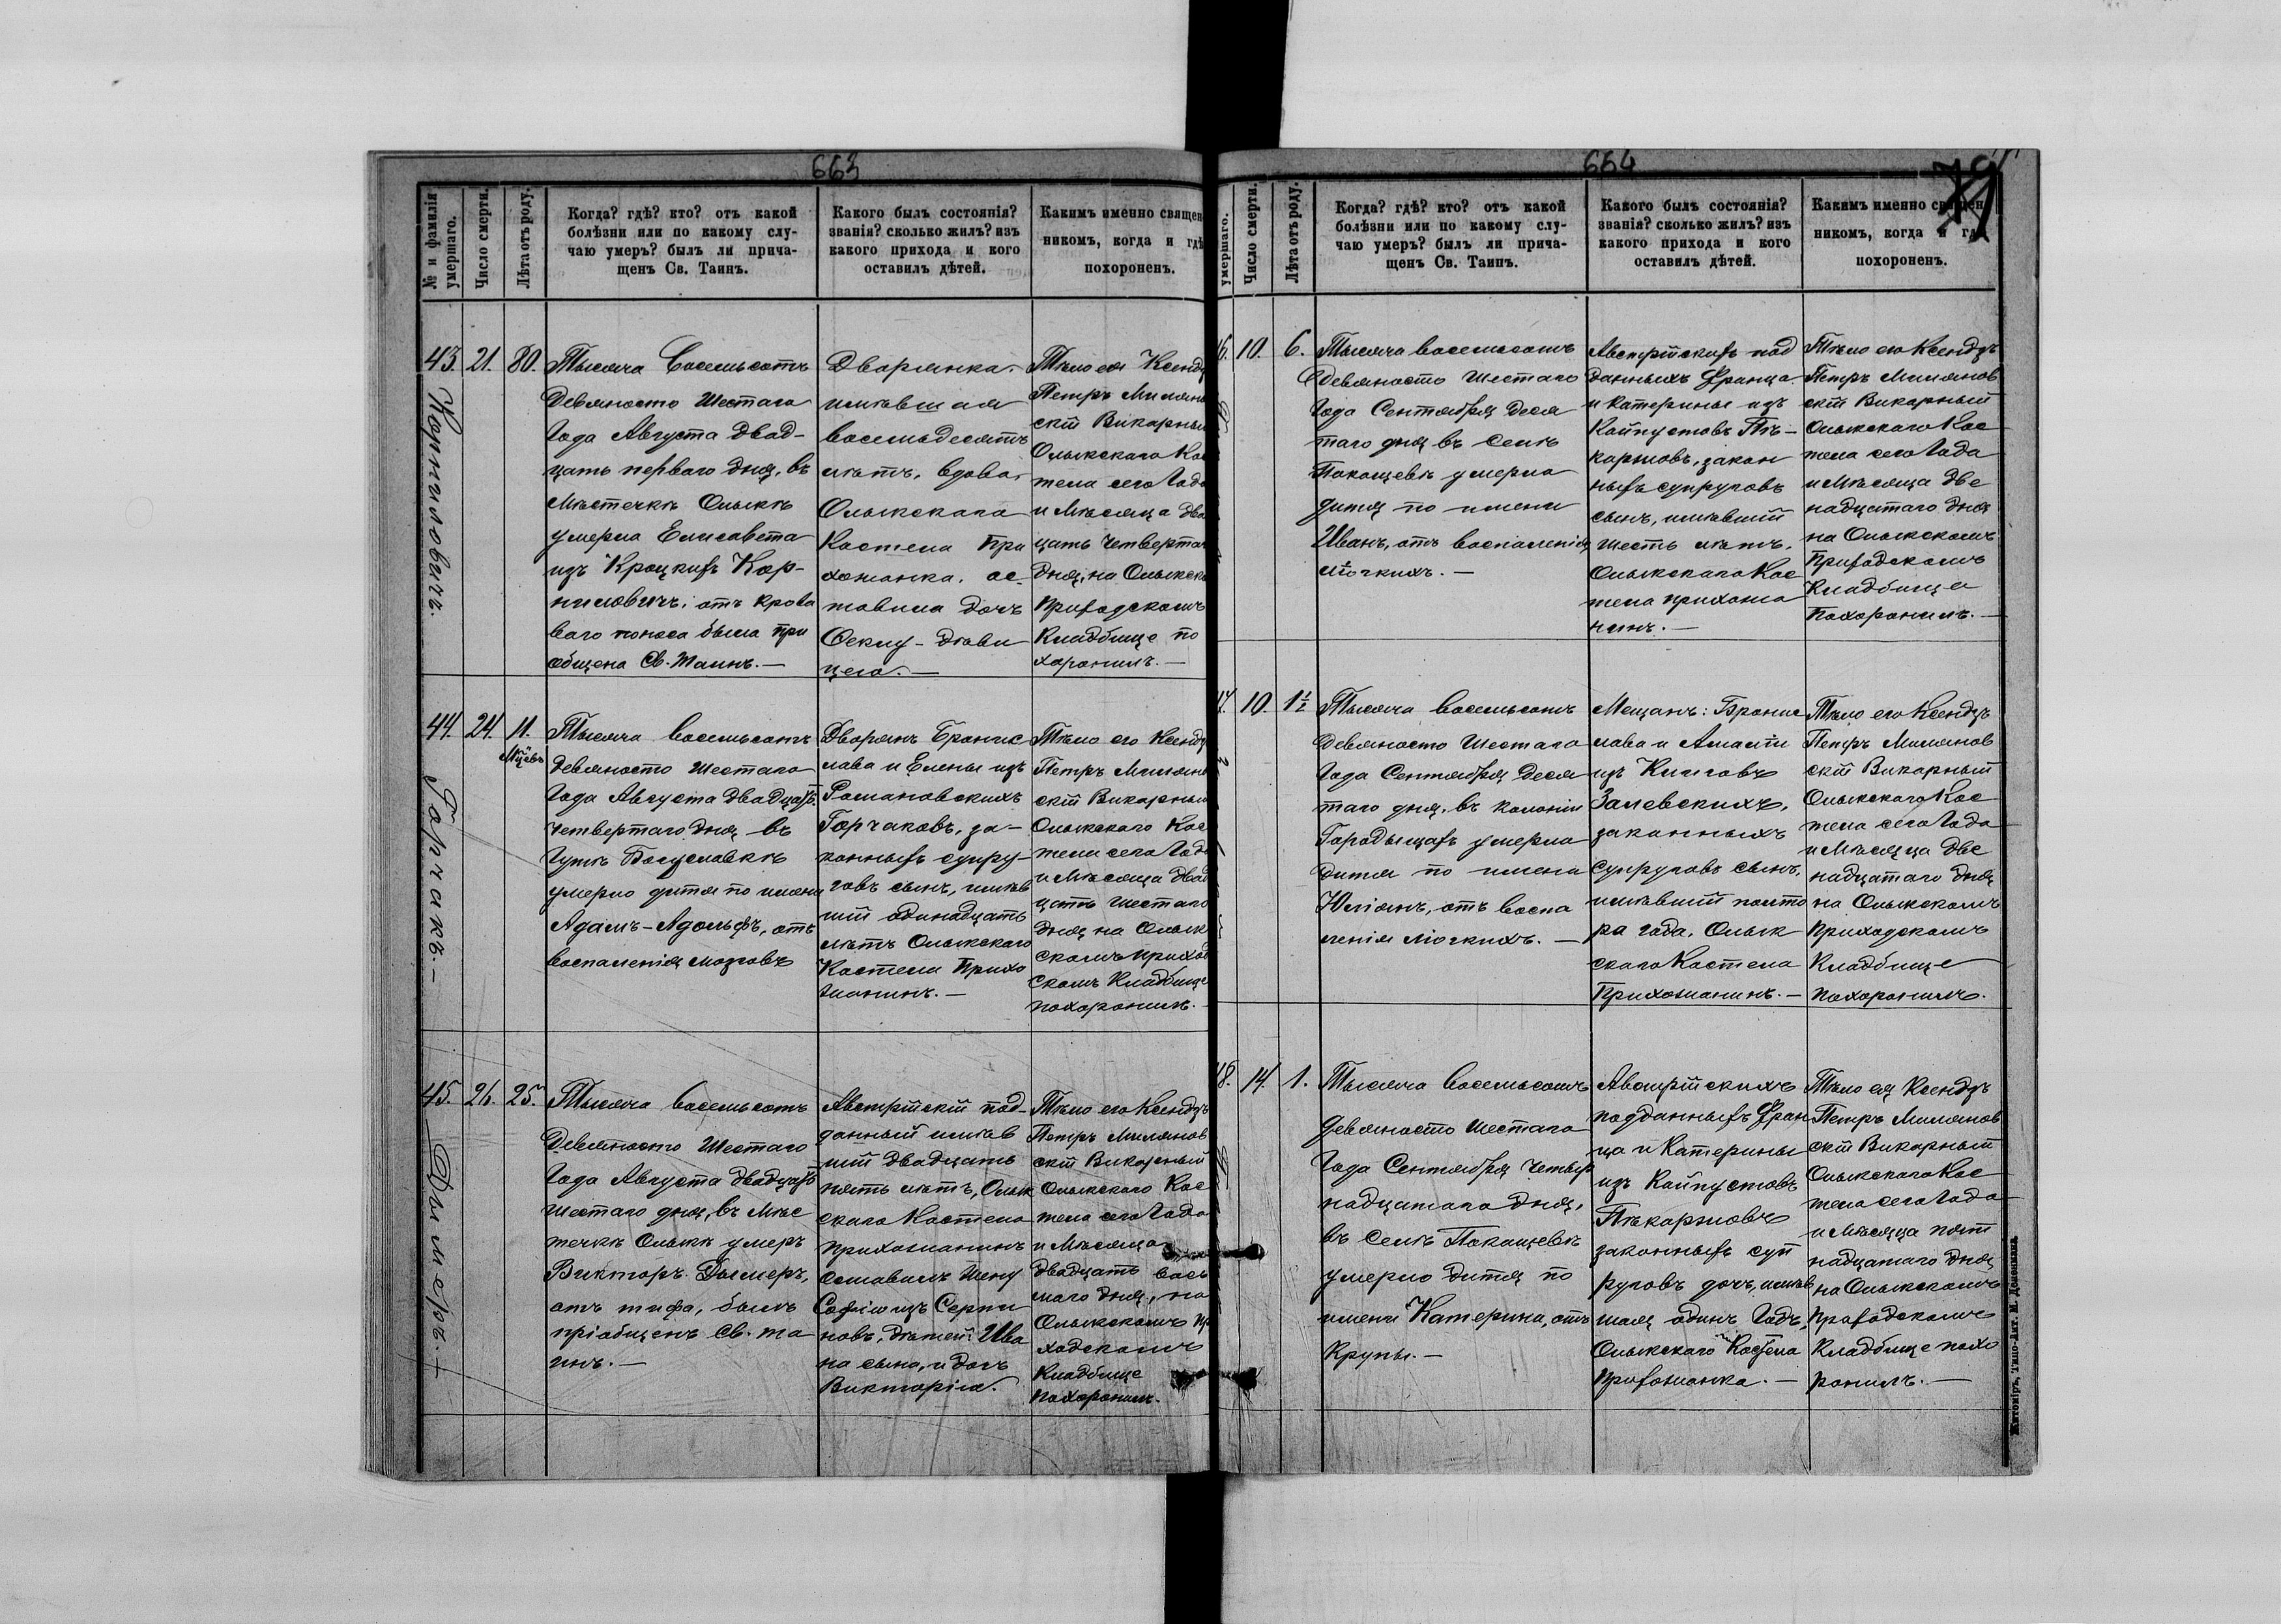 663
№ и фамилія умершаго.
Число смерти.
Лѣта отъ роду.
Когда? гдѣ? кто? отъ какой
болѣзни или по какому слу-
чаю умеръ? былъ ли прича-
щенъ Св. Таинъ.
Какого былъ состоянія?
званія? сколько жилъ? изъ
какого прихода и кого
оставилъ дѣтей.
Какимъ именно священ
никомъ, когда и гдѣ
похороненъ.
43.
Корниловичъ.
21.
80.
Тысяча Восемьсотъ
Девяносто Шестаго
Года Августа двад-
цать перваго дня, въ
Мѣстечкѣ Олыкѣ
умерла Елисавета
изъ Кроцкихъ Кор-
ниловичъ, отъ крова
ваго поноса была прі
общена Св. Таинъ. —
Дворянка,
имѣвшая
восемьдесятъ
лѣтъ, вдова,
Олыкскаго
Костела При
хожанка, ос
тавила дочь
Феклу - дѣви
цею. —
Тѣло ея Ксендз
Петръ Милянов
скій Викарный
Олыкскаго Кос
тела сего Года
и Мѣсяца два
цать Четвертаг
дня, на Олыкско
Приходскомъ
Кладбище по
хоронилъ. —
44.
Горчакъ. —
24.
11.
Мцевъ
Тысяча восемьсотъ
девяносто Шестаго
Года Августа двадцать
четвертаго дня въ
Гутѣ Богуславкѣ
умерло дитя по имени
Адамъ-Адольфъ, отъ
воспаленія мозговъ
Дворянъ Бронис
лава и Елены изъ
Романовскихъ
Горчаковъ, за-
конныхъ супру-
говъ сынъ, имѣв
шій одинадцать
лѣтъ Олыкскаго
Костела Прихо
жанинъ. —
Тѣло его Ксендз
Петръ Милянов
скій Викарный
Олыкскаго Кос
тела сего Года
и Мѣсяца двад
цать шестаго
дня на Олык
скомъ приход
скомъ Кладбище
похоронилъ.
45.
Дымеръ. —
26.
25.
Тысяча восемьсотъ
Девяносто Шестаго
Года Августа двадцать
шестаго дня, въ Мѣс
течкѣ Олыкѣ умеръ
Викторъ Дымеръ,
отъ тифа, былъ
пріобщенъ Св. Та
инъ. —
Австрійскій под-
данный имѣв
шій двадцать
пять лѣтъ, Олык
скаго Костела
прихожанинъ
оставилъ Жену
Софію изъ Серпи
новъ, дѣтей: Ива
на сына, и дочь
Викторію.
Тѣло его Ксендзъ
Петръ Милянов
скій Викарный
Олыкскаго Кос
тела сего Года
и Мѣсяца
двадцать вось
маго дня, на
Олыкскомъ Пр
ходскомъ
Кладбище
похоронилъ.
664
умершаго.
Число смерти.
Лѣта отъ роду.
Когда? гдѣ? кто? отъ какой
болѣзни или по какому слу-
чаю умеръ? былъ ли прича-
щенъ Св. Таинъ.
Какого былъ состоянія?
званія? сколько жилъ? изъ
какого прихода и кого
оставилъ дѣтей.
Какимъ именно священ
никомъ, когда и гдѣ
похороненъ.
6.
10.
6.
Тысяча восемьсотъ
девяносто Шестаго
Года Сентября деся
таго дня въ селѣ
Покощевѣ умерло
дитя по имени
Иванъ, отъ воспаленія
лёгкихъ. —
Австрійскихъ под
данныхъ Франца
и Катерины изъ
Кайпустовъ Пѣ-
каржовъ, закон
ныхъ супруговъ
сынъ, имѣвшій
шесть лѣтъ,
Олыкскаго Кос
тела прихожа
нинъ. —
Тѣло его Ксендзъ
Петръ Милянов
скій Викарный
Олыкскаго Кос
тела сего Года
и Мѣсяца две
надцатаго дня
на Олыкскомъ
Приходскомъ
Кладбище
Похоронилъ. —
10.
1 1/2
Тысяча восемьсотъ
Девяносто Шестаго
Года Сентября деся
таго дня, въ колоніи
Городыщахъ умерло
дитя по имени
Юліянъ, отъ воспа
ленія лёгкихъ. —
Мещанъ: Бронис
лава и Амаліи
изъ
Залевскихъ,
законныхъ
супруговъ сынъ,
имѣвшій полто
ра года, Олык
скаго Костела
Прихожанинъ. —
Тѣло его Ксендзъ
Петръ Милянов
скій Викарный
Олыкскаго Кос
тела сего Года
и Мѣсяца две
надцатаго дня
на Олыкскомъ
приходскомъ
Кладбище
похоронилъ.
8.
14.
1.
Тысяча восемьсотъ
девяносто шестаго
Года Сентября четыр
надцатаго дня,
въ селѣ Покощевѣ
умерло дитя по
имени Катерина, отъ
Крупы. —
Австрійскихъ
подданныхъ Фран
ца и Катерины
изъ Кайпустовъ
Пѣкаржовъ
законныхъ суп
руговъ дочь, имѣв
шая одинъ Годъ,
Олыкскаго Костела
прихожанка. —
Тѣло ея Ксендзъ
Петръ Милянов
скій Викарный
Олыкскаго Кос
тела сего Года
и Мѣсяца пят
надцатаго дня
на Олыкскомъ
приходскомъ
Кладбище похо
ронилъ. —
Житоміръ, Типо-Лит. М. Дененмана.